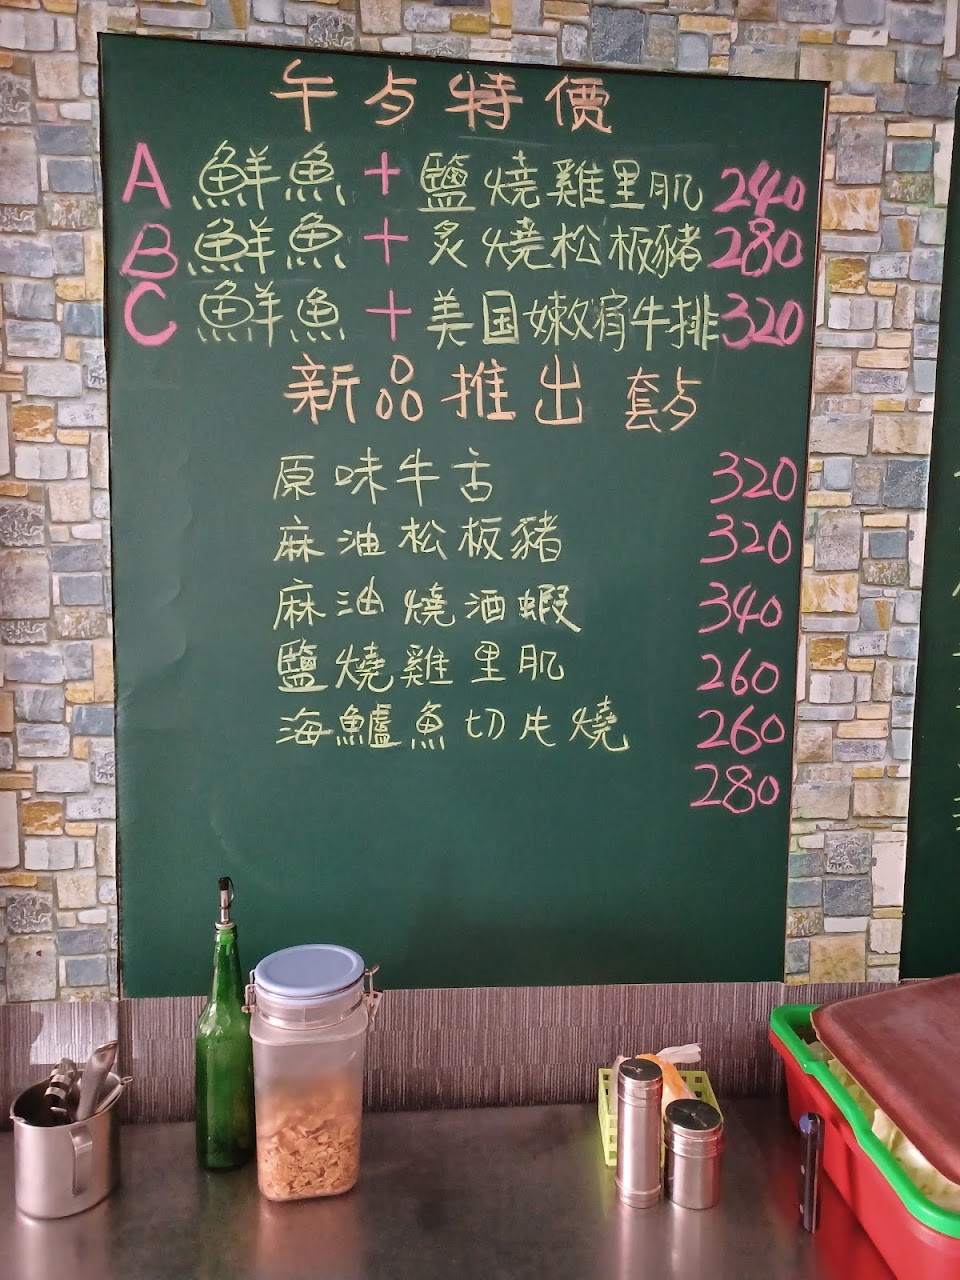 午歺特價
A 鮮魚+鹽燒雞里肌 240
B 鮮魚+炙燒松板豬 280
C 鮮魚+美国嫩肩牛排 320
新品推出 套歺
原味牛舌 320
麻油松板豬 320
麻油燒酒蝦 340
鹽燒雞里肌 260
海鱸魚切片燒 260
280